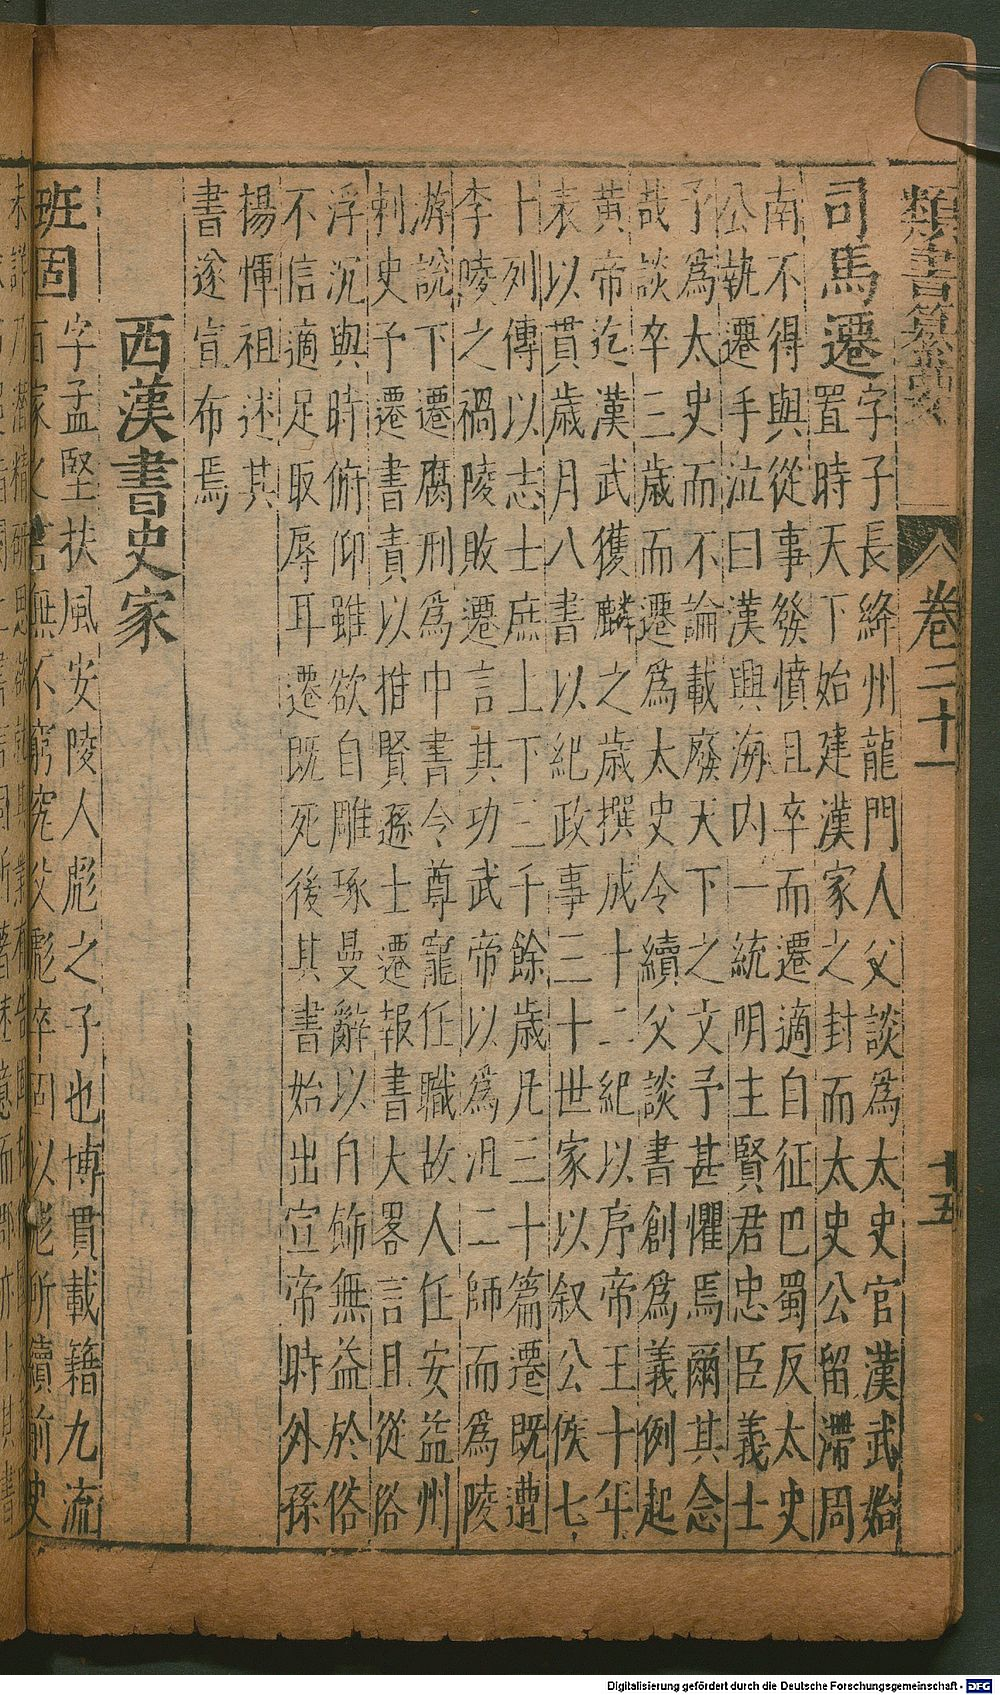 類書纂要 卷二十一 十五
司馬遷 字子長絳州龍門人父談爲太史官漢武始
置時天下始建漢家之封而太史公留滯周
南不得與從事發憤且卒而遷適自征巴蜀反太史
公執遷手泣曰漢興海內一統明主賢君忠臣義士
予爲太史而不論載廢天下之文予甚懼焉爾其念
哉談卒三歲而遷爲太史令續父談書創爲義例起
黃帝迄漢武獲麟之歲撰成十二紀以序帝王十年
表以貫歲月八書以紀政事三十世家以叙公侯七
十列傳以志士庶上下三千餘歲凡三十篇遷既遭
李陵之禍陵敗遷言其功武帝以爲沮二師而爲陵
游說下遷腐刑爲中書令尊寵任職故人任安益州
刺史予遷書責以推賢進士遷報書大畧言且從俗
浮沉與時俯仰雖欲自雕琢曼辭以自飾無益於俗
不信適足取辱耳遷既死後其書始出宣帝時外孫
楊惲祖述其
書遂宣布焉
西漢書史家
班固 字孟堅扶風安陵人彪之子也博貫載籍九流
百家之言無不窮究父彪卒固以彪所續前史
未詳乃潛精研思欲就其業有告
Digitalisierung gefördert durch die Deutsche Forschungsgemeinschaft - DFG